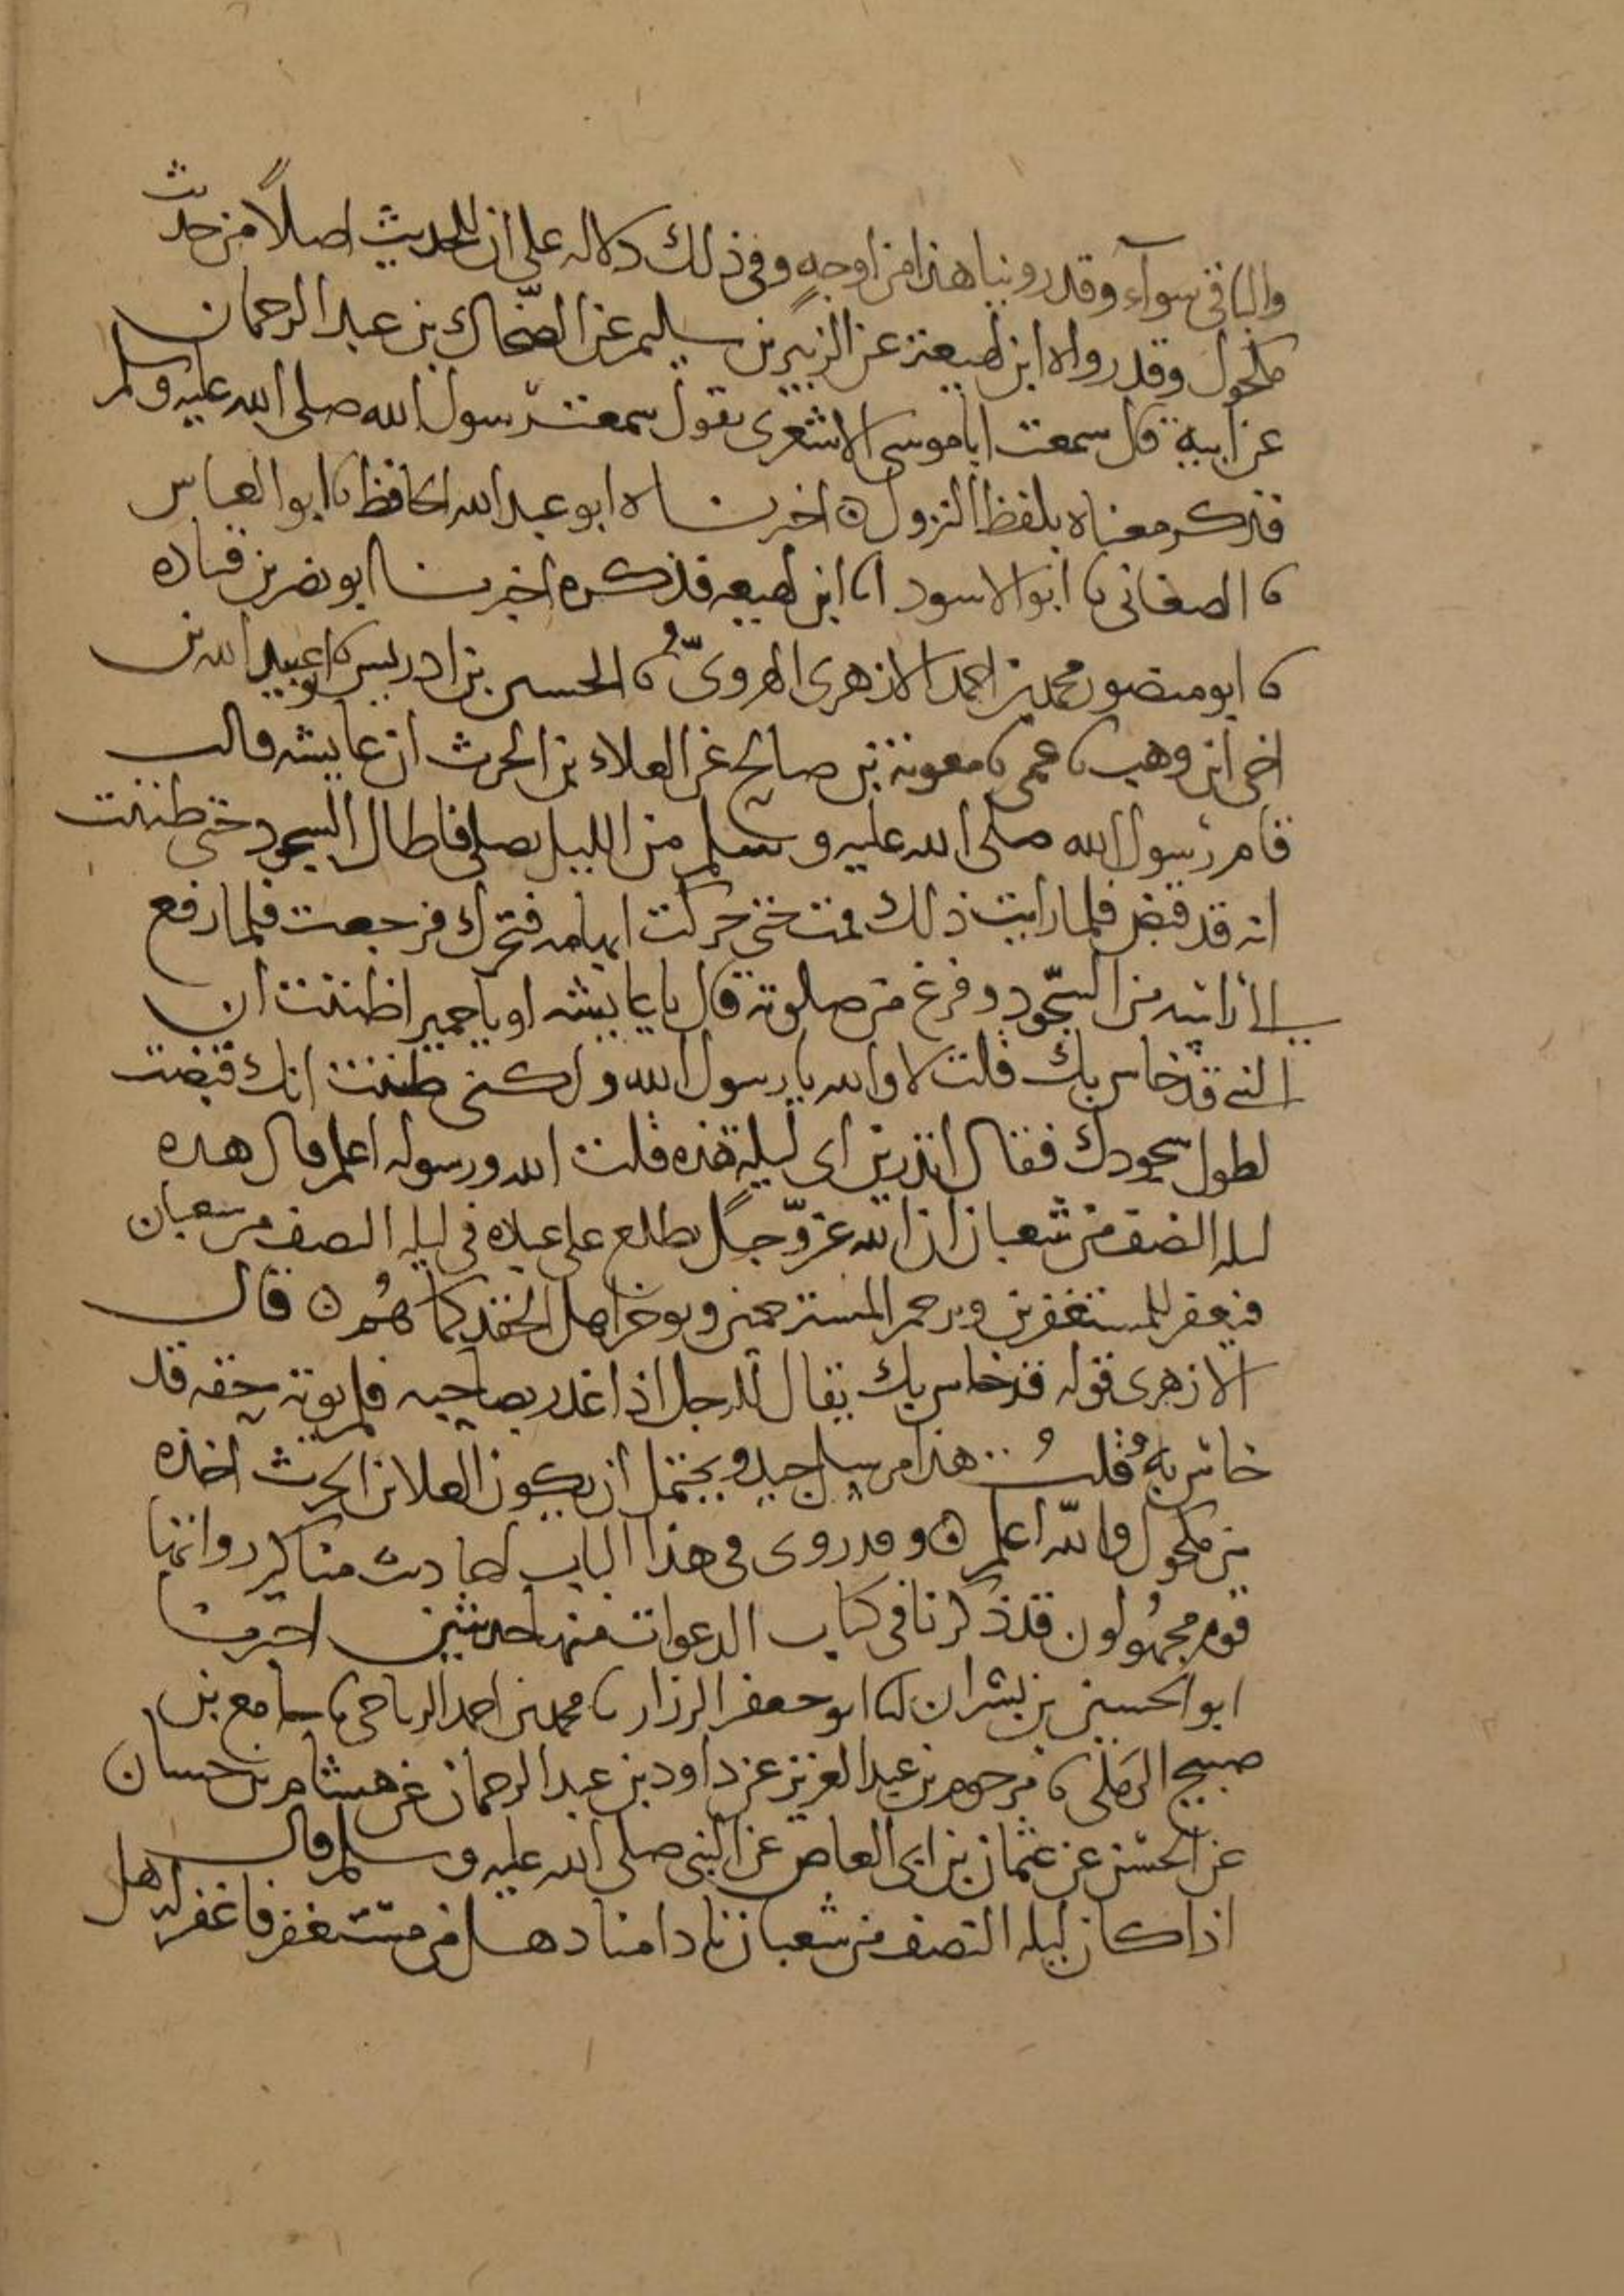 والباقي سوآء وقد روينا هذا من اوجه وفي ذلك دلاله على ان للحديث اصلاً من حديث
مكحول وقد رواه ابن لهيعة عن الزبير بن سليم عن الضحّاك بن عبد الرحمان
عن ابيه قال سمعت ابا موسى الاشعري يقول سمعت رسول الله صلى الله عليه وسلم
فذكر معناه بلفظ النزول ٥ اخبرناه ابو عبد الله الحافظ نا ابو العباس
نا الصغاني نا ابو الاسود انا ابن لهيعه فذكره اخبرنا ابو نصر بن قتاده
نا ابو منصور محمد بن احمد الازهري الهرويّ نا الحسين بن ادريس نا ابو عبيد الله بن
اخي ابن وهب نا عمي نا معوية بن صالح عن العلاء بن الحرث ان عايشه قالت
قام رسول الله صلى الله عليه وسلم من الليل يصلي فاطال السجود حتى ظننت
انه قد قبض فلما رايت ذلك قمت حتى حركت ابهامه فتحرك فرجعت فلما رفع
الي راسه من السّجود وفرغ من صلوته قال يا عايشه او يا حميرا ظننت ان
النبي قد خاس بك قلت لا والله يا رسول الله ولكني ظننت انك قبضت
لطول سجودك فقال اتدرين اي ليلة هذه قلت الله ورسوله اعلم قال هذه
ليله النصف من شعبان ان الله عزّ وجل يطلع على عباده في ليله النصف من شعبان
فيغفر للمستغفرين ويرحم المسترحمين ويوخر اهل الحقد كما هُم ٥ قال
الازهري قوله قد خاس بك يقال للرجل اذا غدر بصاحبه فلم يوته حقه قد
خاس به قلتُ هذا مرسل جيد ويحتمل ان يكون العلا بن الحرث اخذه
من مكحول والله اعلم ٥ وقد روي في هذا الباب احاديث مناكير رواتها
قوم مجهُولون قد ذكرنا في كتاب الدعوات منها حديثين اخبرنا
ابو الحسين بن بشران انا ابو جعفر الرزاز نا محمد بن احمد الرياحي نا جامع بن
صبيح الرملي نا مرحوم بن عبد العزيز عن داود بن عبد الرحمان عن هشام بن حسان
عن الحسن عن عثمان بن ابي العاص عن النبي صلى الله عليه وسلم قال
اذا كان ليله النصف من شعبان نادا مناد هل من مستغفر فاغفر له هل